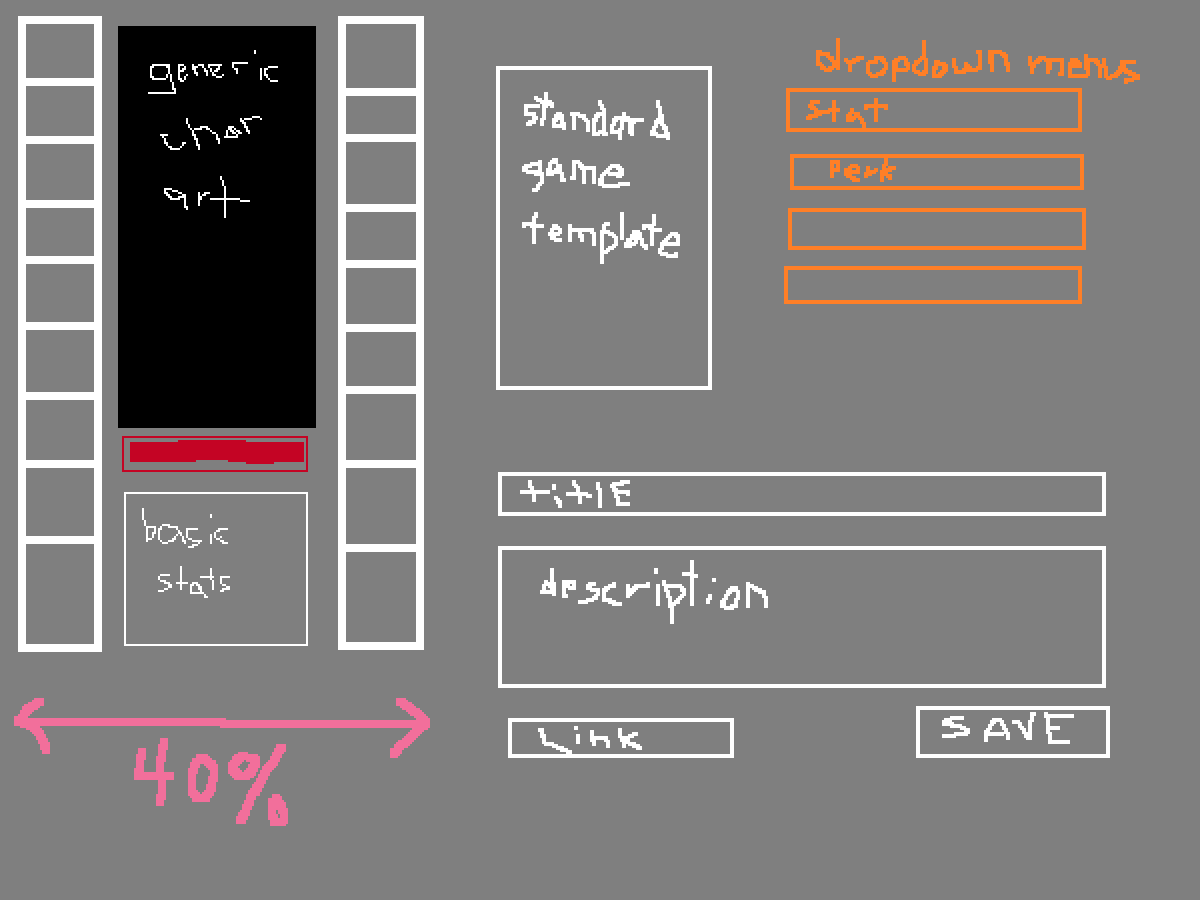 generic
char
art
basic
stats
40%
standard
game
template
dropdown menus
stat
Perk
titlE
description
Link
SAVE